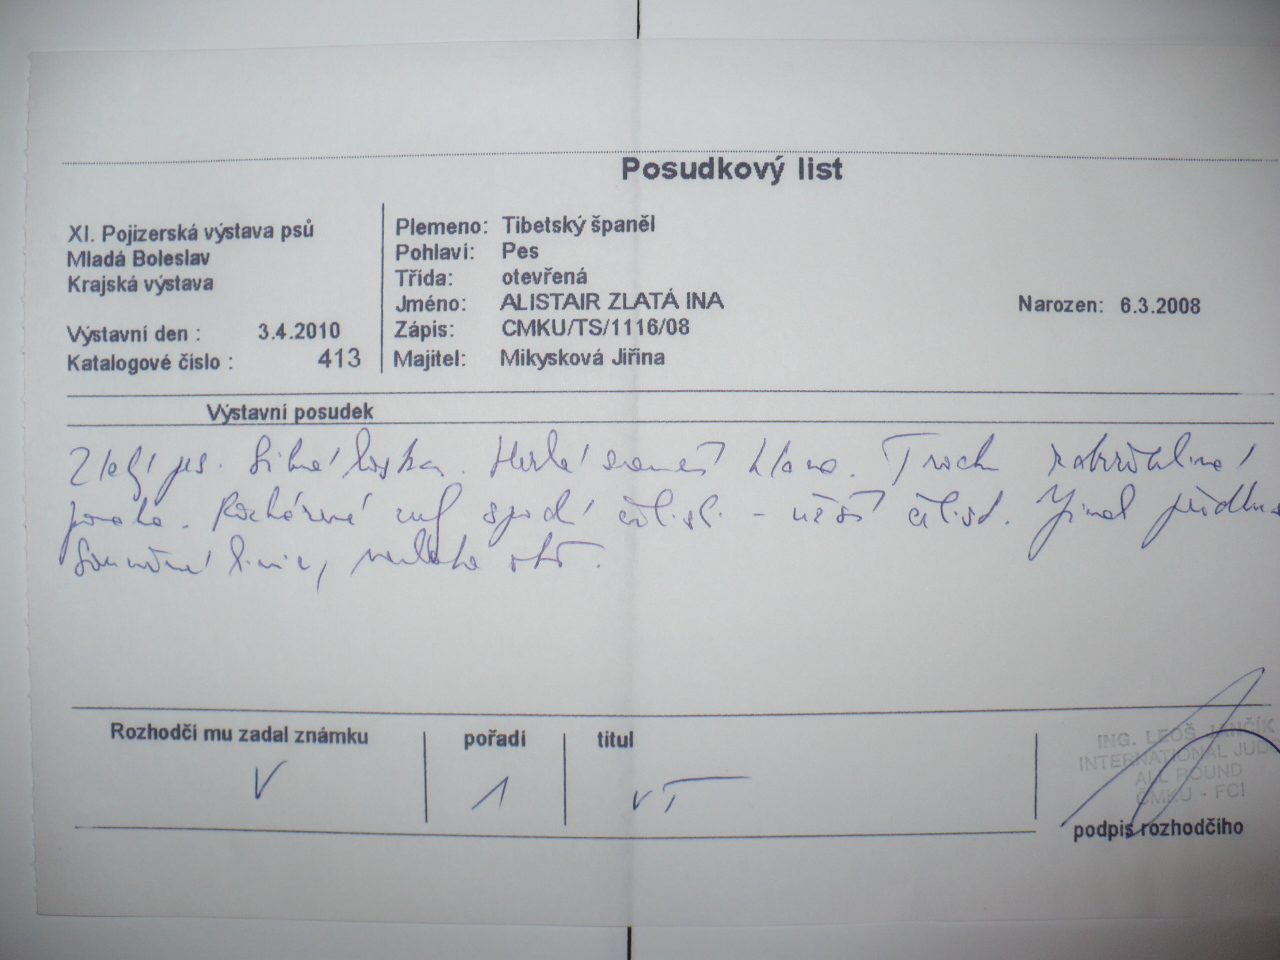 Posudkový list
XI. Pojizerská výstava psů
Mladá Boleslav
Krajská výstava
Výstavní den : 3.4.2010
Katalogové číslo : 413
Plemeno: Tibetský španěl
Pohlaví: Pes
Třída: otevřená
Jméno: ALISTAIR ZLATÁ INA
Narozen: 6.3.2008
Zápis: CMKU/TS/1116/08
Majitel: Mikysková Jiřina
Výstavní posudek
Zlatý pes. Silná kostra. Hezká hlava. Trochu
spodní čelisti - užší čelist. Jinak
linie,
Rozhodčí mu zadal známku
V
pořadí
1
titul
VT
ING. LEOŠ JANČÍK
INTERNATIONAL JUD
ALL ROUND
ČMKU - FCI
podpis rozhodčího